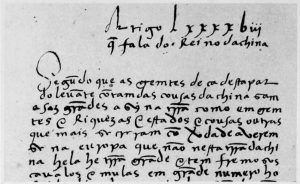 Artigo Lxxxxbiii
q̃ fala do Reino da china
Segudo que as gemtes de ca destas par
do levãte cõtam das cousas da china sam
asas grãdes asy na como em gen
tes e Riquezas e estados e cousas outras
que mais se com verdade averem
se na europa que não nesta da chi
na hela he grãde e tem fremosos
cavalos e mulas em grãde numero